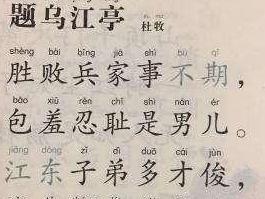 题乌江亭 杜牧
shèng bài bīng jiā shì bù qī
胜败兵家事不期，
bāo xiū rěn chǐ shì nán ér
包羞忍耻是男儿。
jiāng dōng zǐ dì duō cái jùn
江东子弟多才俊，